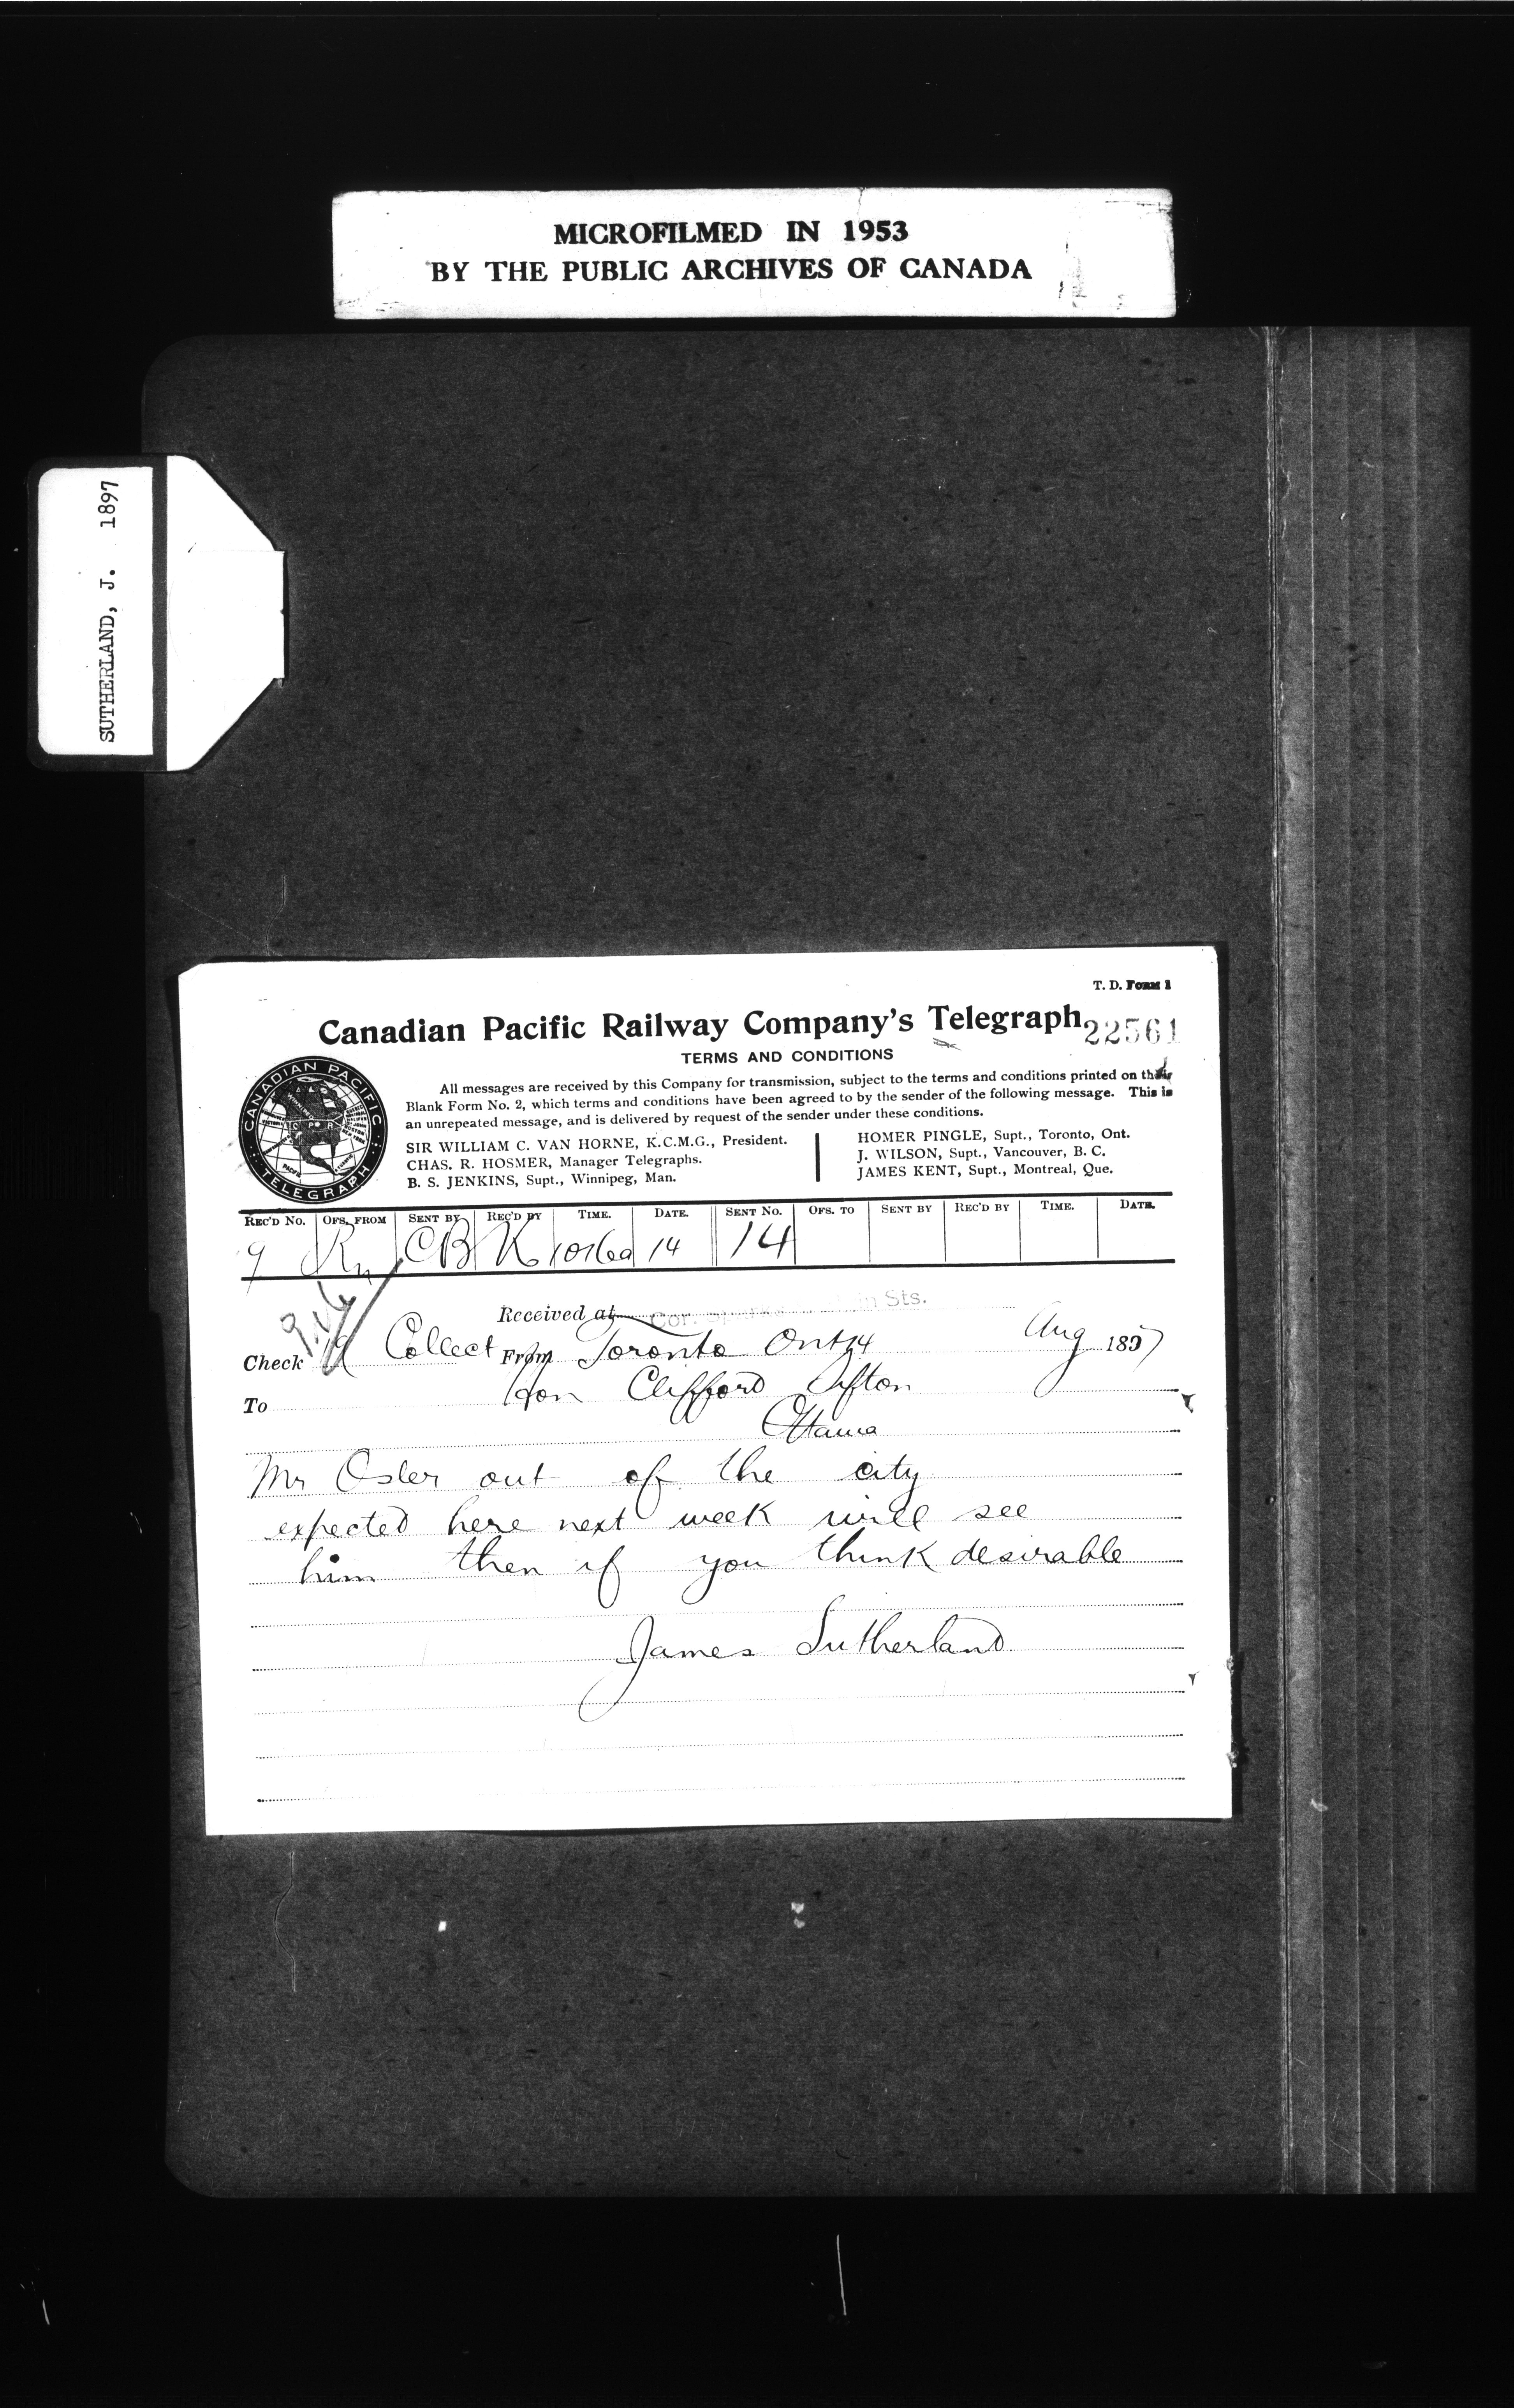 MICROFILMED IN 1953
BY THE PUBLIC ARCHIVES OF CANADA
SUTHERLAND, J. 1897
T. D. FORM 1
Canadian Pacific Railway Company's Telegraph
22561
TERMS AND CONDITIONS
CANADIAN PACIFIC
TELEGRAPH
All messages are received by this Company for transmission, subject to the terms and conditions printed on their
Blank Form No. 2, which terms and conditions have been agreed to by the sender of the following message. This is
an unrepeated message, and is delivered by request of the sender under these conditions.
SIR WILLIAM C. VAN HORNE, K.C.M.G., President.
CHAS. R. HOSMER, Manager Telegraphs.
B. S. JENKINS, Supt., Winnipeg, Man.
HOMER PINGLE, Supt., Toronto, Ont.
J. WILSON, Supt., Vancouver, B. C.
JAMES KENT, Supt., Montreal, Que.
REC'D No. OFS. FROM SENT BY REC'D BY TIME. DATE. SENT No. OFS. TO SENT BY REC'D BY TIME. DATE.
9 Rn CB K 1016a 14 14
Received at Cor. Sts.
Check Collect From Toronto Ont 14 Aug 1897
To Hon Clifford Sifton
Ottawa
Mr Osler out of the city
expected here next week will see
him then if you think desirable
James Sutherland